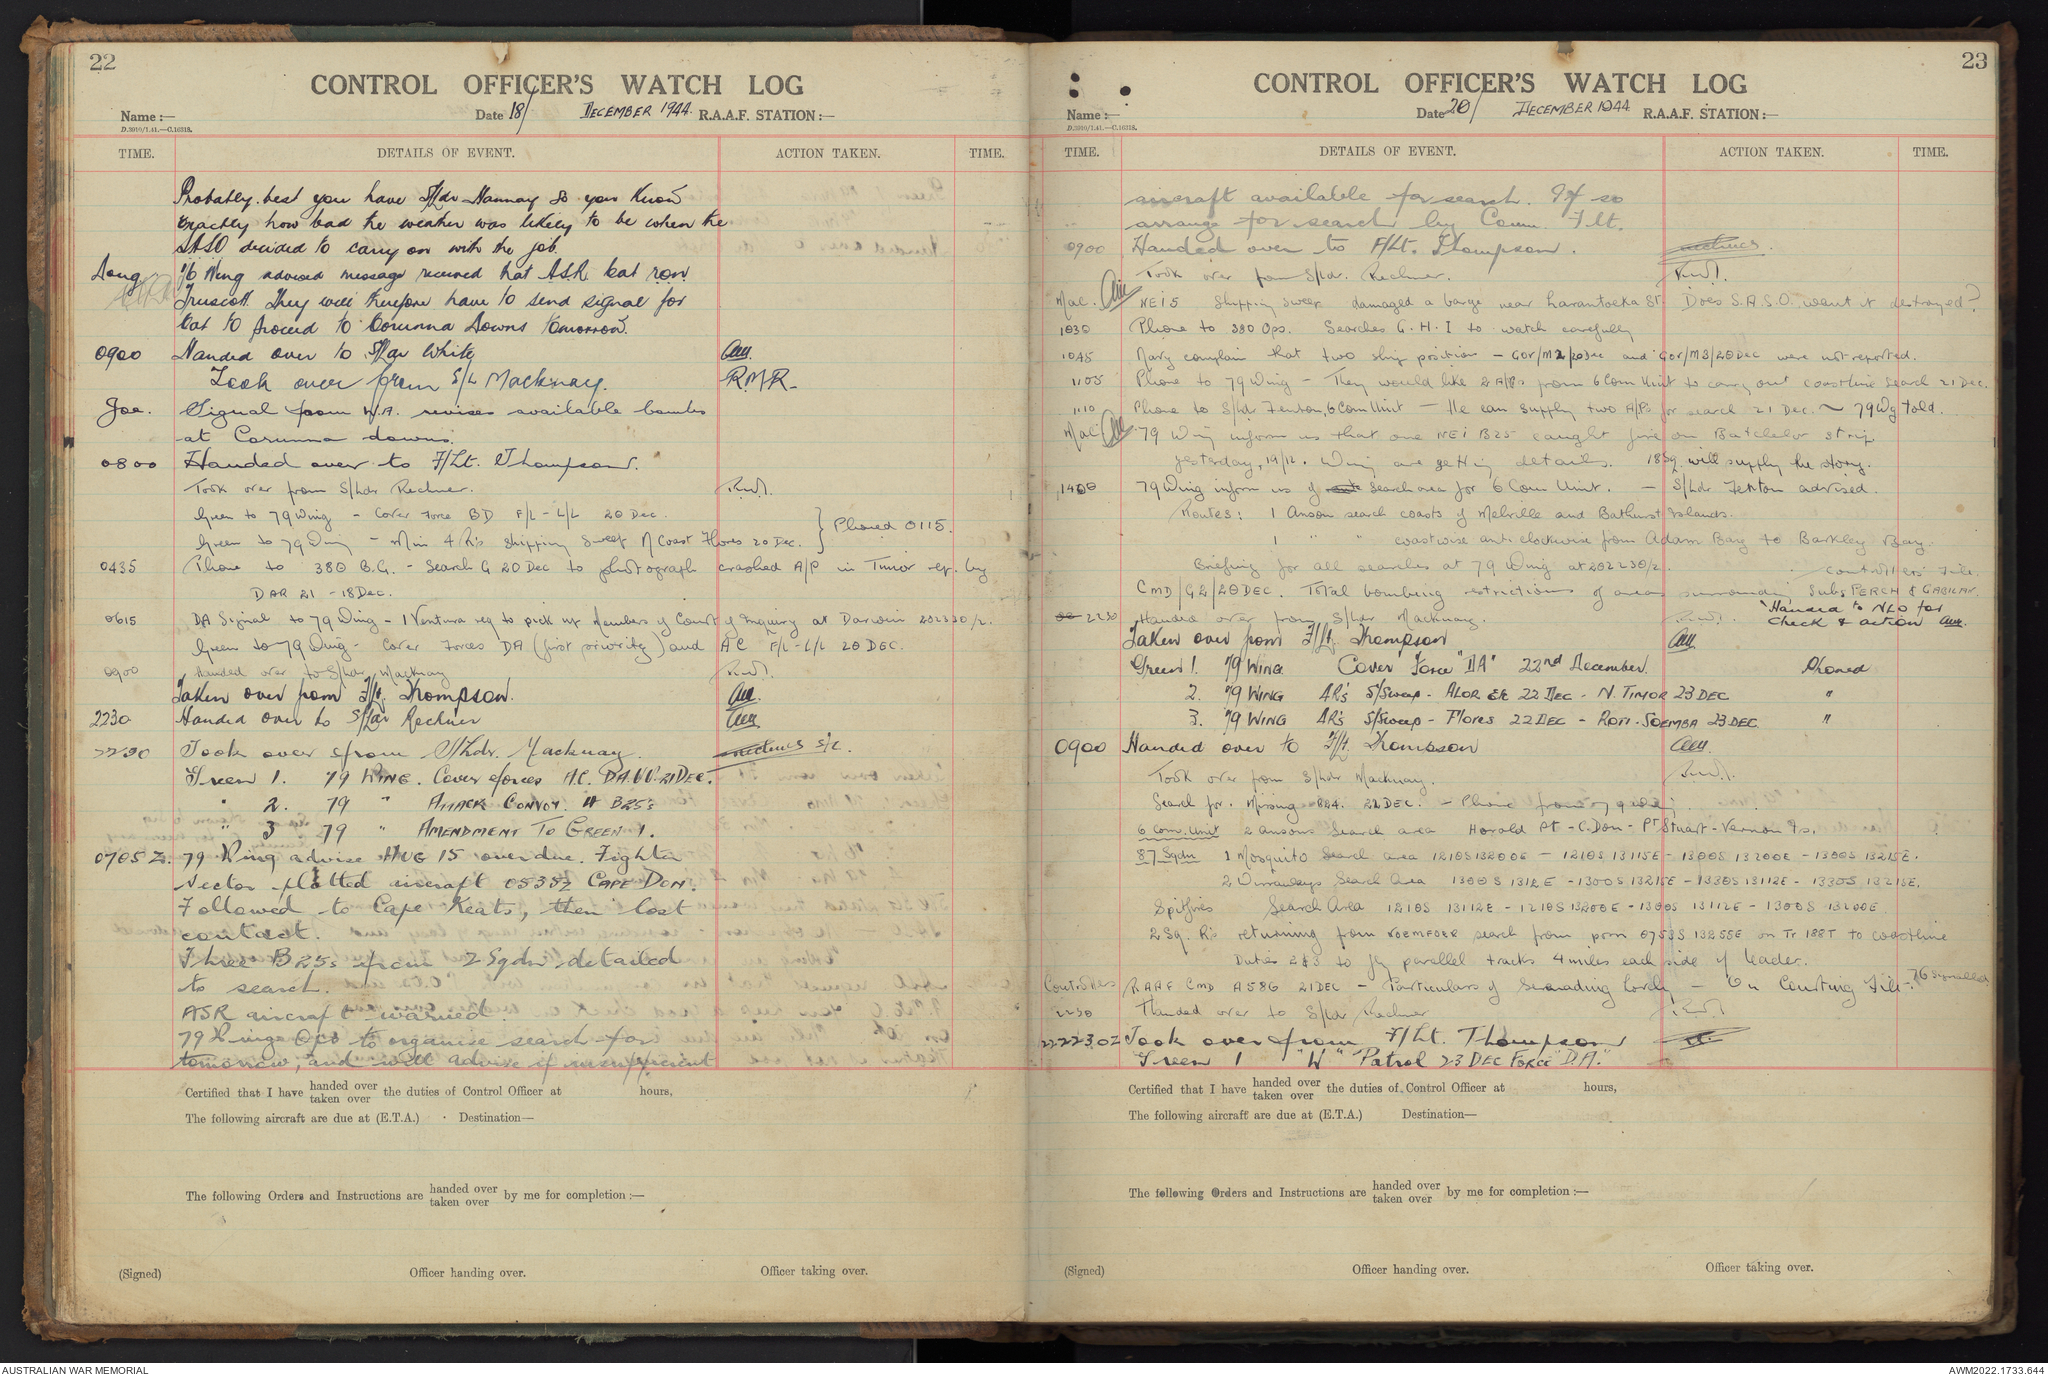 22
CONTROL OFFICER'S WATCH LOG
Name :— Date 18/ DECEMBER 1944. R.A.A.F. STATION :—
D.3910/1.41.—C.16318.
TIME. DETAILS OF EVENT. ACTION TAKEN. TIME.
Probably best you have S/Ldr Hannay so you know
exactly how bad the weather was likely to be when the
SASO decided to carry on with the job.
Doug I/O Wing advised message received that ASR Cat
Truscott. They will therefore have to send signal for
Cat to proceed to Corunna Downs tomorrow.
0900 Handed over to S/Ldr White
Took over from S/L Macknay. RMR-
Joe. Signal from W.A. revises available bombs
at Corunna downs.
0800 Handed over to F/Lt. Thompson.
Took over from S/Ldr Rechner.
Green to 79 Wing - Cover Force BD F/L - L/L 20 Dec.
Phoned 0115.
Green to 79 Wing - Min 4 A/c's Shipping Sweep N Coast Flores 20 Dec.
0435 Phone to 380 B.G. - Search G 20 Dec to photograph crashed A/P in Timor ref. by
DAR 21 - 18 Dec.
0615 DA Signal to 79 Wing - 1 Ventura req to pick up Members of Court of Inquiry at Darwin 202230/Z.
Green to 79 Wing - Cover Forces DA (first priority) and AC F/L - L/L 20 DEC.
0900 Handed over to S/Ldr Macknay
Taken over from F/Lt. Thompson.
2230 Handed over to S/Ldr Rechner
2230 Took over from S/Ldr. Macknay. S/L.
Green 1. 79 WING. Cover forces AC. DA. 21 DEC.
" 2. 79 " ATTACK CONVOY. 4 B25's
" 3 79 " AMENDMENT TO GREEN 1.
0705 Z. 79 Wing advise AUG 15 overdue. Fighter
Sector plotted aircraft 0535Z CAPE DON.
Followed to Cape Keats, then lost
contact.
Three B25s from 2 Sqdn detailed
to search.
ASR aircraft warned.
79 Wing Ops to organise search for
tomorrow, and will advise if insufficient
Certified that I have handed over taken over the duties of Control Officer at hours,
The following aircraft are due at (E.T.A.) Destination—
The following Orders and Instructions are handed over taken over by me for completion :—
(Signed) Officer handing over. Officer taking over.
23
CONTROL OFFICER'S WATCH LOG
Name :— Date 20/ DECEMBER 1944 R.A.A.F. STATION :—
D.3910/1.41.—C.16318.
TIME. DETAILS OF EVENT. ACTION TAKEN. TIME.
aircraft available for search. If so
arrange for search by Comm. Flt.
0900 Handed over to F/Lt. Thompson.
Took over from S/Ldr. Rechner.
Mac. NEI 5 Shipping Sweep damaged a barge near Larantoeka St. Does S.A.S.O. want it destroyed?
1030 Phone to 380 Ops. Searches G. H. I to watch carefully
1045 Navy complain that two ship position - GOV/M2/20 Dec and GOV/M3/20 DEC were not reported.
1105 Phone to 79 Wing - They would like 2 A/Ps from 6 Com Unit to carry out coastline search 21 Dec.
1110 Phone to S/Ldr Fenton, 6 Com Unit - He can supply two A/Ps for search 21 Dec. ~ 79 Wg told.
Mac. 79 Wing inform us that one NEI B25 caught fire on Batchelor strip
yesterday, 19/12. Wing are getting details. 18 Sq. will supply the story.
1400 79 Wing inform us of search area for 6 Com Unit. - S/Ldr Fenton advised.
Routes: 1 Anson search coasts of Melville and Bathurst Islands.
1 " " coastwise anti clockwise from Adam Bay to Barkley Bay.
Briefing for all searches at 79 Wing at 202230/Z. Controllers' File.
CMD/G2/20 DEC. Total bombing restrictions of areas surrounding Subs PERCH & GABILAN.
"Handed to NLO for
2230 Handed over from S/Ldr Macknay. check & action
Taken over from F/Lt. Thompson
Green 1. 79 WING Cover Force "DA" 22nd December. Phoned
2. 79 WING 4R's S/Sweep - ALOR Etc 22 DEC - N. TIMOR 23 DEC "
3. 79 WING 4R's S/Sweep - Flores 22 DEC - ROTI. SOEMBA 23 DEC. "
0900 Handed over to F/Lt. Thompson
Took over from S/Ldr Macknay.
Search for Missing B24. 22 DEC. - Phone from 79 Wing
6 Com. Unit 2 Ansons Search area Harold Pt - C. Don - Pt Stuart - Vernon Is.
87 Sqdn 1 Mosquito Search area 1210S 13200E - 1210S 13115E - 1300S 13200E - 1300S 13215E.
2 Wirraways Search Area 1300S 1312E - 1300S 13215E - 1330S 13112E - 1330S 13215E.
Spitfires Search Area 1210S 13112E - 1210S 13200E - 1300S 13112E - 1300S 13200E
2 Sq. R's returning from NOEMFOER search from posn 0753S 13255E on Tr 188T to coastline
Duties 2 & 3 to fly parallel tracks 4 miles each side of leader.
Controllers RAAF CMD A586 21 DEC - Particulars of Serenading Lovely - On Courting File - 76 Signalled
2230 Handed over to S/Ldr Rechner
222230Z Took over from F/Lt. Thompson
Green 1 "W" Patrol 23 DEC FORCE "D.A."
Certified that I have handed over taken over the duties of Control Officer at hours,
The following aircraft are due at (E.T.A.) Destination—
The following Orders and Instructions are handed over taken over by me for completion :—
(Signed) Officer handing over. Officer taking over.
AUSTRALIAN WAR MEMORIAL AWM2022.1733.644